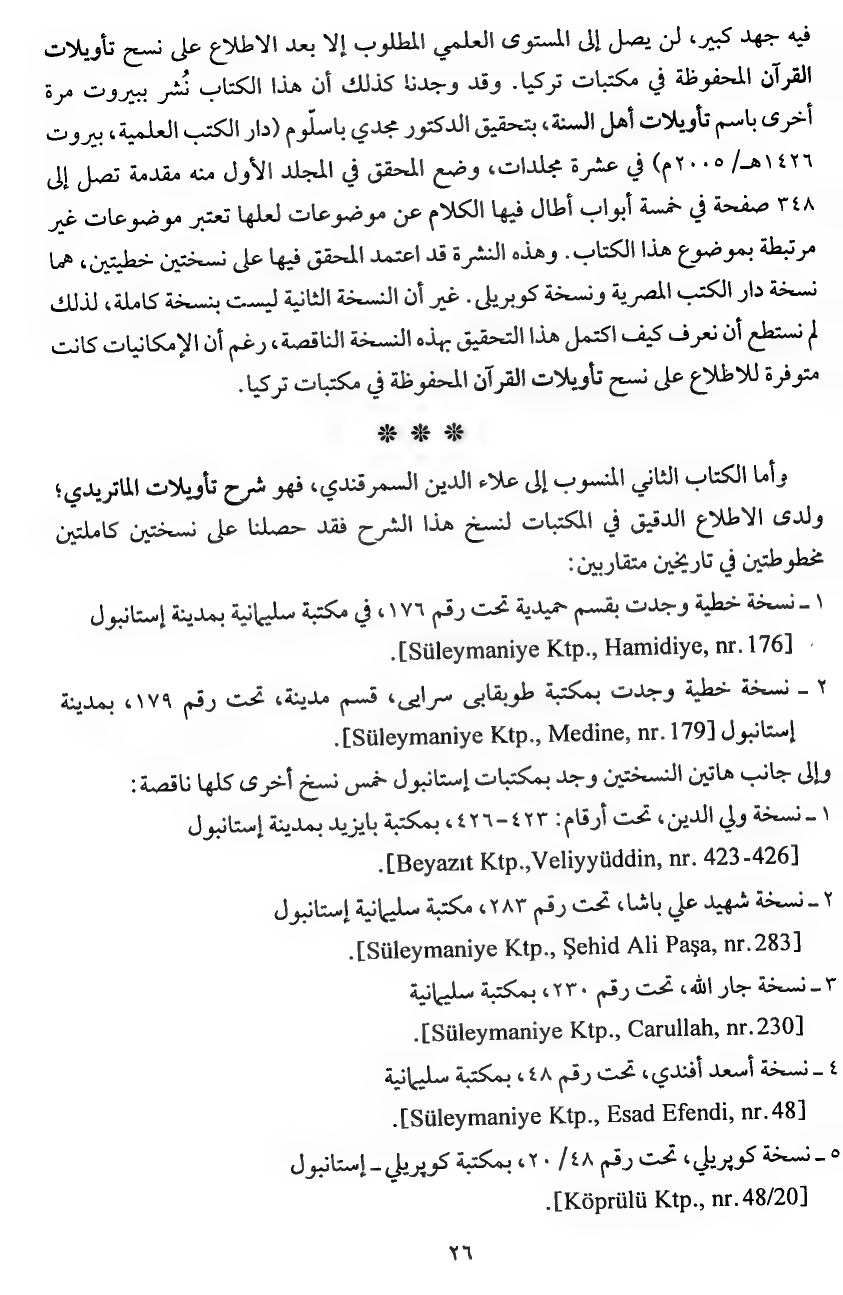 فيه جهد كبير، لن يصل إلى المستوى العلمي المطلوب إلا بعد الاطلاع على نسخ تأويلات
القرآن المحفوظة في مكتبات تركيا. وقد وجدنا كذلك أن هذا الكتاب نُشر ببيروت مرة
أخرى باسم تأويلات أهل السنة، بتحقيق الدكتور مجدي باسلّوم (دار الكتب العلمية، بيروت
١٤٢٦هـ/ ٢٠٠٥م) في عشرة مجلدات، وضع المحقق في المجلد الأول منه مقدمة تصل إلى
٣٤٨ صفحة في خمسة أبواب أطال فيها الكلام عن موضوعات لعلها تعتبر موضوعات غير
مرتبطة بموضوع هذا الكتاب. وهذه النشرة قد اعتمد المحقق فيها على نسختين خطيتين، هما
نسخة دار الكتب المصرية ونسخة كوبريلى. غير أن النسخة الثانية ليست بنسخة كاملة، لذلك
لم نستطع أن نعرف كيف اكتمل هذا التحقيق بهذه النسخة الناقصة، رغم أن الإمكانيات كانت
متوفرة للاطلاع على نسخ تأويلات القرآن المحفوظة في مكتبات تركيا.
❋ ❋ ❋
وأما الكتاب الثاني المنسوب إلى علاء الدين السمرقندي، فهو شرح تأويلات الماتريدي؛
ولدى الاطلاع الدقيق في المكتبات لنسخ هذا الشرح فقد حصلنا على نسختين كاملتين
مخطوطتين في تاريخين متقاربين:
١ ـ نسخة خطية وجدت بقسم حميدية تحت رقم ١٧٦، في مكتبة سليمانية بمدينة إستانبول
[Süleymaniye Ktp., Hamidiye, nr. 176].
٢ ـ نسخة خطية وجدت بمكتبة طوبقابى سرايى، قسم مدينة، تحت رقم ١٧٩، بمدينة
إستانبول [Süleymaniye Ktp., Medine, nr. 179].
وإلى جانب هاتين النسختين وجد بمكتبات إستانبول خمس نسخ أخرى كلها ناقصة:
١ ـ نسخة ولي الدين، تحت أرقام: ٤٢٣-٤٢٦، بمكتبة بايزيد بمدينة إستانبول
[Beyazıt Ktp.,Veliyyüddin, nr. 423-426].
٢ ـ نسخة شهيد علي باشا، تحت رقم ٢٨٣، مكتبة سليمانية إستانبول
[Süleymaniye Ktp., Şehid Ali Paşa, nr.283].
٣ ـ نسخة جار الله، تحت رقم ٢٣٠، بمكتبة سليمانية
[Süleymaniye Ktp., Carullah, nr.230].
٤ ـ نسخة أسعد أفندي، تحت رقم ٤٨، بمكتبة سليمانية
[Süleymaniye Ktp., Esad Efendi, nr.48].
٥ ـ نسخة كوپريلي، تحت رقم ٤٨/ ٢٠، بمكتبة كوپريلي ـ إستانبول
[Köprülü Ktp., nr.48/20].
٢٦